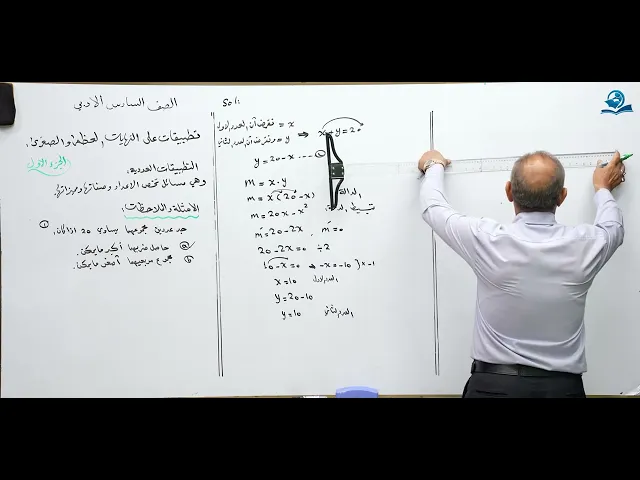 الصف السادس الأدبي
تطبيقات على النهايات العظمى والصغرى.
الجزء الأول
التطبيقات العددية:
وهي مسائل تخص الأعداد وصفاتها وميزاتها.
الأمثلة والملاحظات:
① جد عددين مجموعهما يساوي 20 إذا كان:
ⓐ حاصل ضربهما أكبر ما يمكن.
ⓑ مجموع مربعيهما أصغر ما يمكن.
Sol:
نفرض أن العدد الأول = x
ونفرض أن العدد الثاني = y
⇒ x + y = 20
y = 20 - x ----
m = x . y
m = x (20 - x) الدالة
m = 20x - x² تبسيط الدالة
m̄ = 20 - 2x , m̄ = 0
20 - 2x = 0 ÷2
10 - x = 0 ⇒ -x = -10 } x -1
x = 10 العدد الأول
y = 20 - 10
y = 10 العدد الثاني